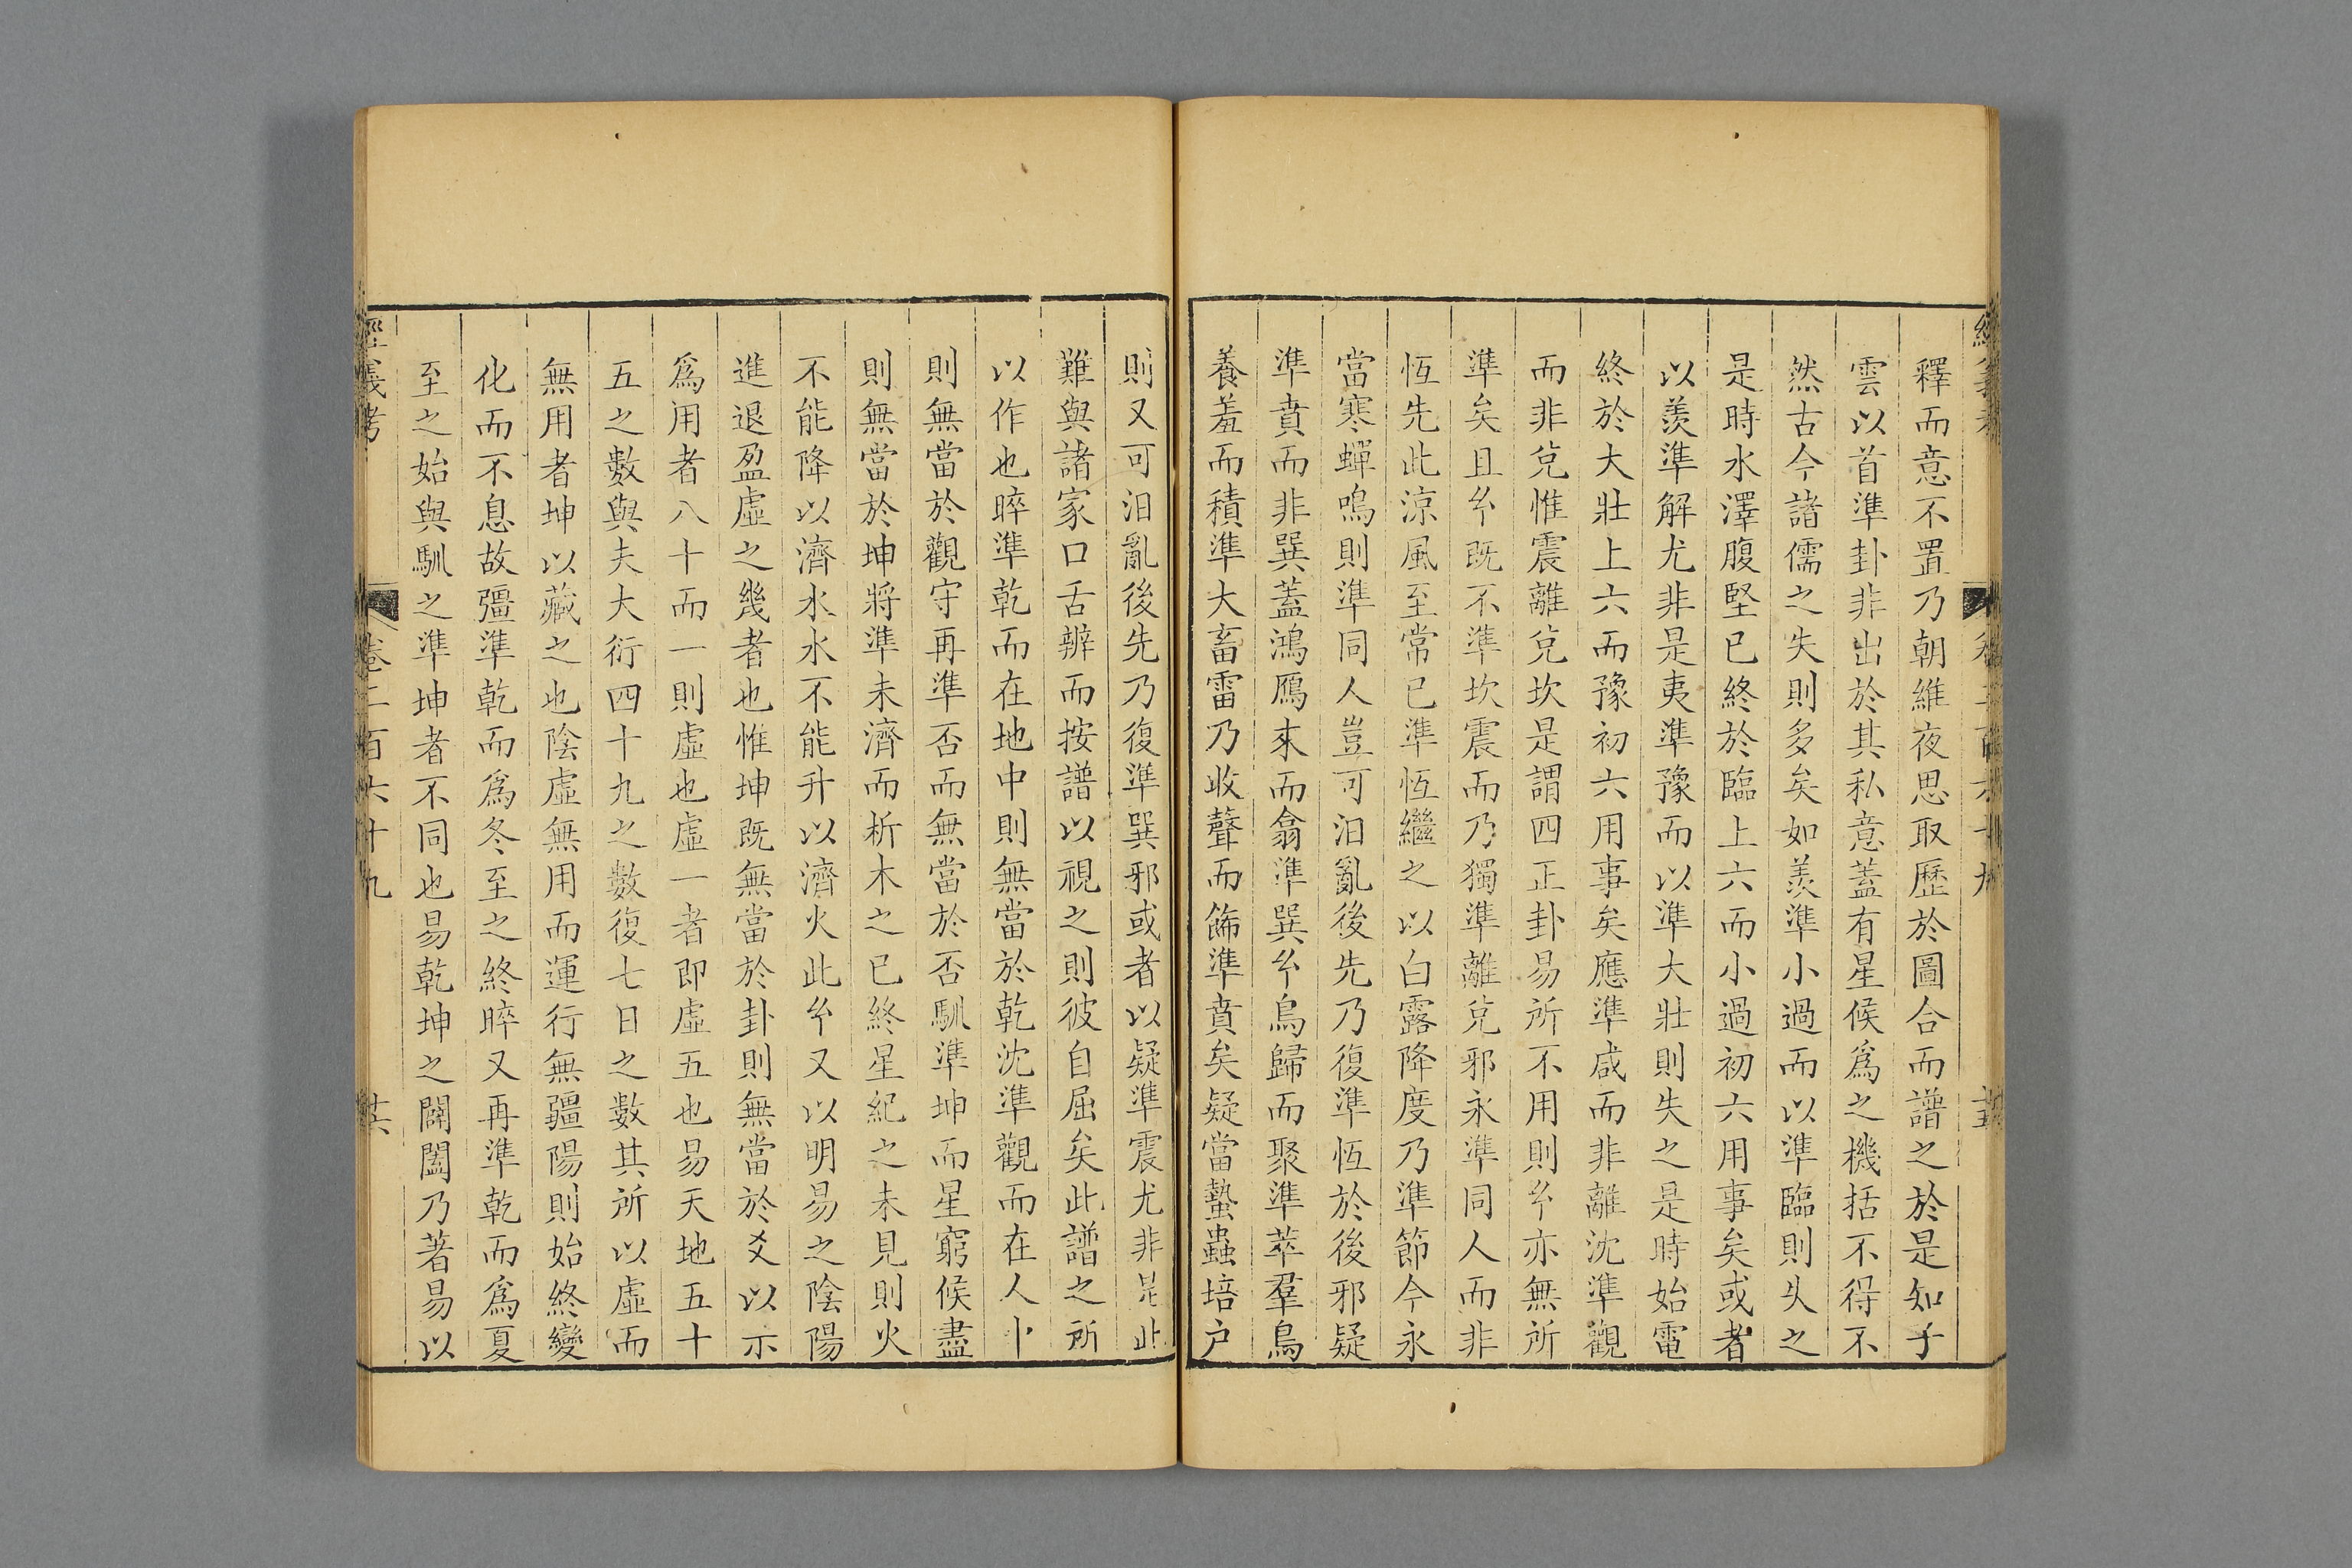 釋而意不置乃朝維夜思取歷於圖合而譜之於是知子
雲以首準卦非出於其私意蓋有星候爲之機括不得不
然古今諸儒之失則多矣如羨準小過而以準臨則失之
是時水澤腹堅已終於臨上六而小過初六用事矣或者
以羨準解尤非是夷準豫而以準大壯則失之是時始電
終於大壯上六而豫初六用事矣應準咸而非離沈準觀
而非兌惟震離兌坎是謂四正卦易所不用則𤣥亦無所
準矣且𤣥既不準坎震而乃獨準離兌邪永準同人而非
恆先此涼風至常已準恆繼之以白露降度乃準節今永
當寒蟬鳴則準同人豈可汨亂後先乃復準恆於後邪疑
準賁而非巽蓋鴻鴈來而翕準巽𤣥鳥歸而聚準萃羣鳥
養羞而積準大畜雷乃收聲而飾準賁矣疑當蟄蟲培户
則又可汨亂後先乃復準巽邪或者以疑準震尤非是此
難與諸家口舌辨而按譜以視之則彼自屈矣此譜之所
以作也睟準乾而在地中則無當於乾沈準觀而在人中
則無當於觀守再準否而無當於否馴準坤而星窮候盡
則無當於坤將準未濟而析木之已終星紀之未見則火
不能降以濟水水不能升以濟火此𤣥又以明易之陰陽
進退盈虛之幾者也惟坤既無當於卦則無當於爻以示
爲用者八十而一則虛也虛一者即虛五也易天地五十
五之數與夫大衍四十九之數復七日之數其所以虛而
無用者坤以藏之也陰虛無用而運行無疆陽則始終變
化而不息故彊準乾而爲冬至之終睟又再準乾而爲夏
至之始與馴之準坤者不同也易乾坤之闢闔乃著易以
經義考 卷二百六十九 廿六